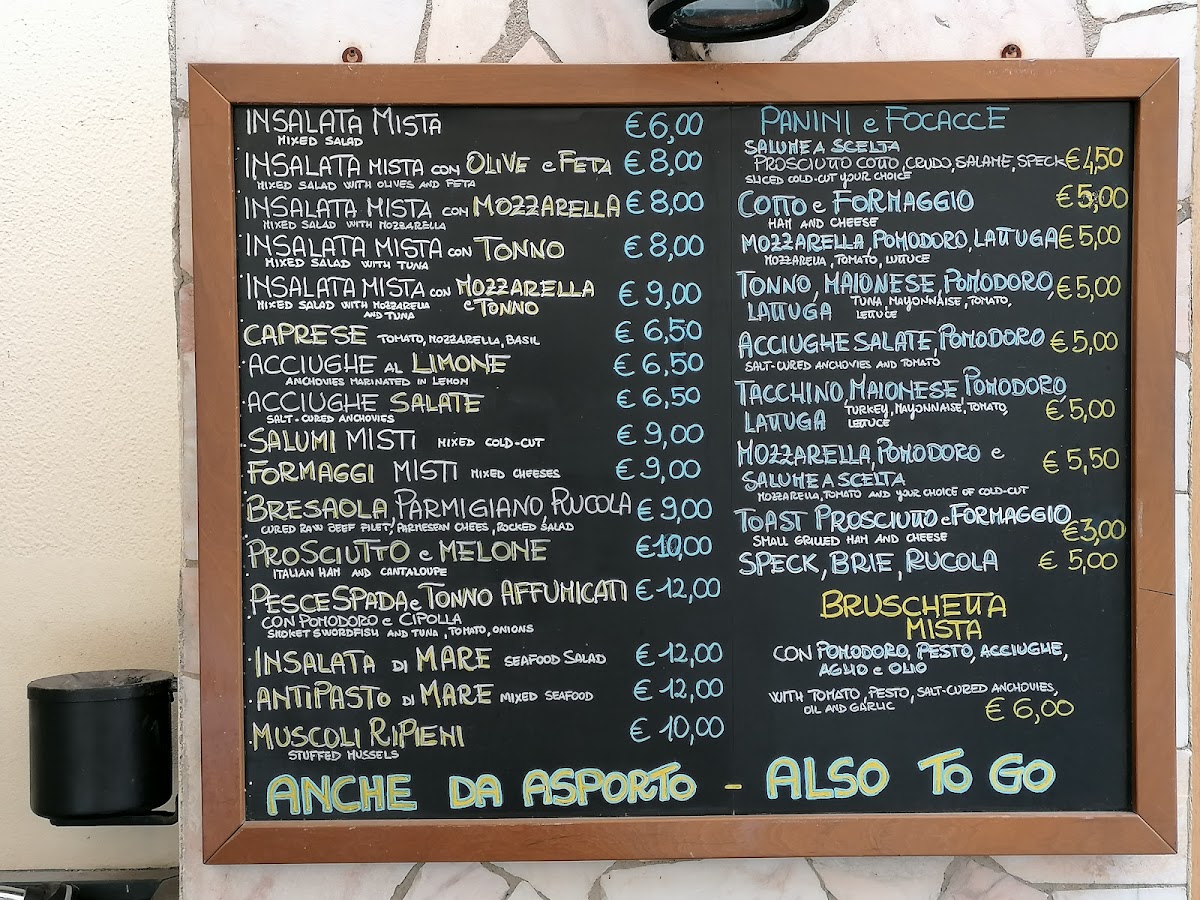 INSALATA MISTA €6,00
MIXED SALAD
INSALATA MISTA CON OLIVE e FETA €8,00
MIXED SALAD WITH OLIVES AND FETA
INSALATA MISTA CON MOZZARELLA €8,00
MIXED SALAD WITH MOZZARELLA
INSALATA MISTA CON TONNO €8,00
MIXED SALAD WITH TUNA
INSALATA MISTA CON MOZZARELLA €9,00
e TONNO
MIXED SALAD WITH MOZZARELLA
AND TUNA
CAPRESE TOMATO, MOZZARELLA, BASIL €6,50
ACCIUGHE AL LIMONE €6,50
ANCHOVIES MARINATED IN LEMON
ACCIUGHE SALATE €6,50
SALT-CURED ANCHOVIES
SALUMI MISTI MIXED COLD-CUT €9,00
FORMAGGI MISTI MIXED CHEESES €9,00
BRESAOLA, PARMIGIANO, RUCOLA €9,00
CURED RAW BEEF FILET, PARMESEAN CHEES, ROCKED SALAD
PROSCIUTTO e MELONE €10,00
ITALIAN HAM AND CANTALOUPE
PESCESPADA e TONNO AFFUMICATI €12,00
CON POMODORO e CIPOLLA
SMOKET SWORDFISH AND TUNA, TOMATO, ONIONS
INSALATA DI MARE SEAFOOD SALAD €12,00
ANTIPASTO DI MARE MIXED SEAFOOD €12,00
MUSCOLI RIPIENI €10,00
STUFFED MUSSELS
PANINI e FOCACCE
SALUME A SCELTA
PROSCIUTTO COTTO, CRUDO, SALAME, SPECK €4,50
SLICED COLD-CUT YOUR CHOICE
COTTO e FORMAGGIO €5,00
HAM AND CHEESE
MOZZARELLA, POMODORO, LATTUGA €5,00
MOZZARELLA, TOMATO, LUTTUCE
TONNO, MAIONESE, POMODORO, €5,00
LATTUGA TUNA MAYONNAISE, TOMATO,
LETTUCE
ACCIUGHE SALATE, POMODORO €5,00
SALT-CURED ANCHOVIES AND TOMATO
TACCHINO, MAIONESE, POMODORO,
LATTUGA TURKEY, MAYONNAISE, TOMATO, €5,00
LETTUCE
MOZZARELLA, POMODORO e €5,50
SALUME A SCELTA
MOZZARELLA, TOMATO AND YOUR CHOICE OF COLD-CUT
TOAST PROSCIUTTO e FORMAGGIO €3,00
SMALL GRILLED HAM AND CHEESE
SPECK, BRIE, RUCOLA €5,00
BRUSCHETTA
MISTA
CON POMODORO, PESTO, ACCIUGHE,
AGLIO e OLIO
WITH TOMATO, PESTO, SALT-CURED ANCHOVIES,
OIL AND GARLIC €6,00
ANCHE DA ASPORTO - ALSO TO GO